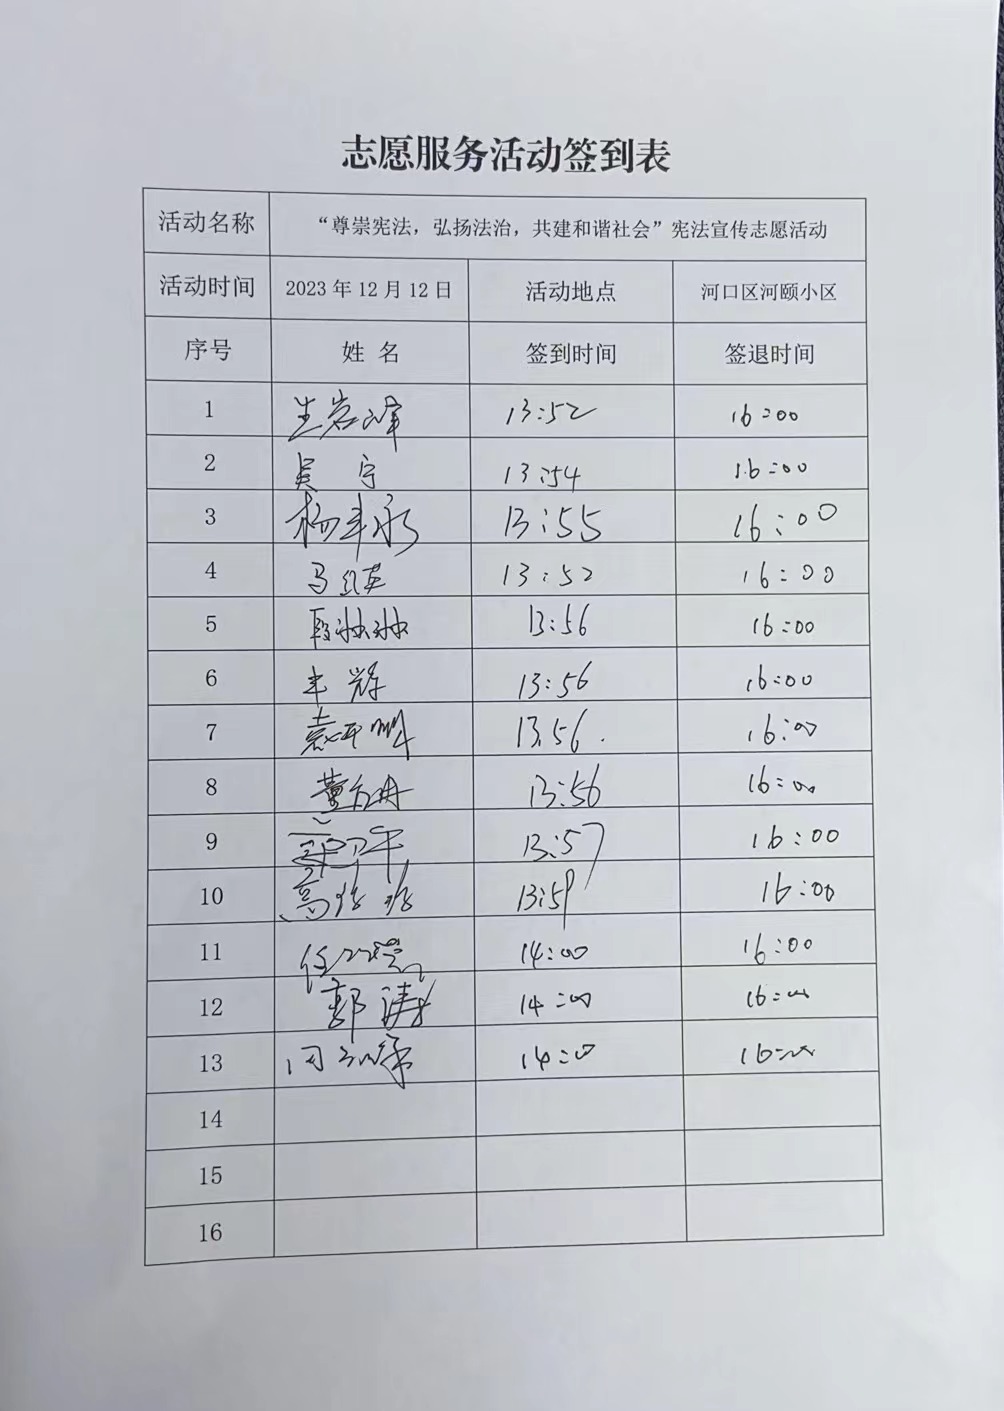 志愿服务活动签到表
活动名称 “尊崇宪法，弘扬法治，共建和谐社会”宪法宣传志愿活动
活动时间 2023年12月12日 活动地点 河口区河颐小区
序号 姓名 签到时间 签退时间
1 生岩峰 13:52 16:00
2 吴宁 13:54 16:00
3 杨丰永 13:55 16:00
4 马红英 13:52 16:00
5 段淋淋 13:56 16:00
6 丰辉 13:56 16:00
7 13:56. 16:00
8 董 13:56 16:00
9 13:57 16:00
10 高 13:59 16:00
11 任 14:00 16:00
12 郭涛 14:00 16:00
13 周 14:00 16:00
14
15
16